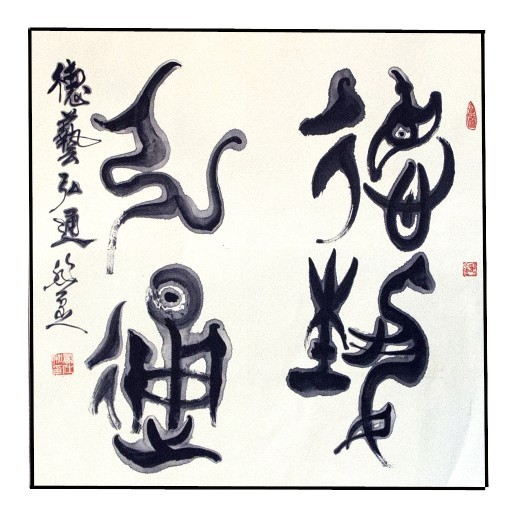 德藝
弘通
德藝弘通